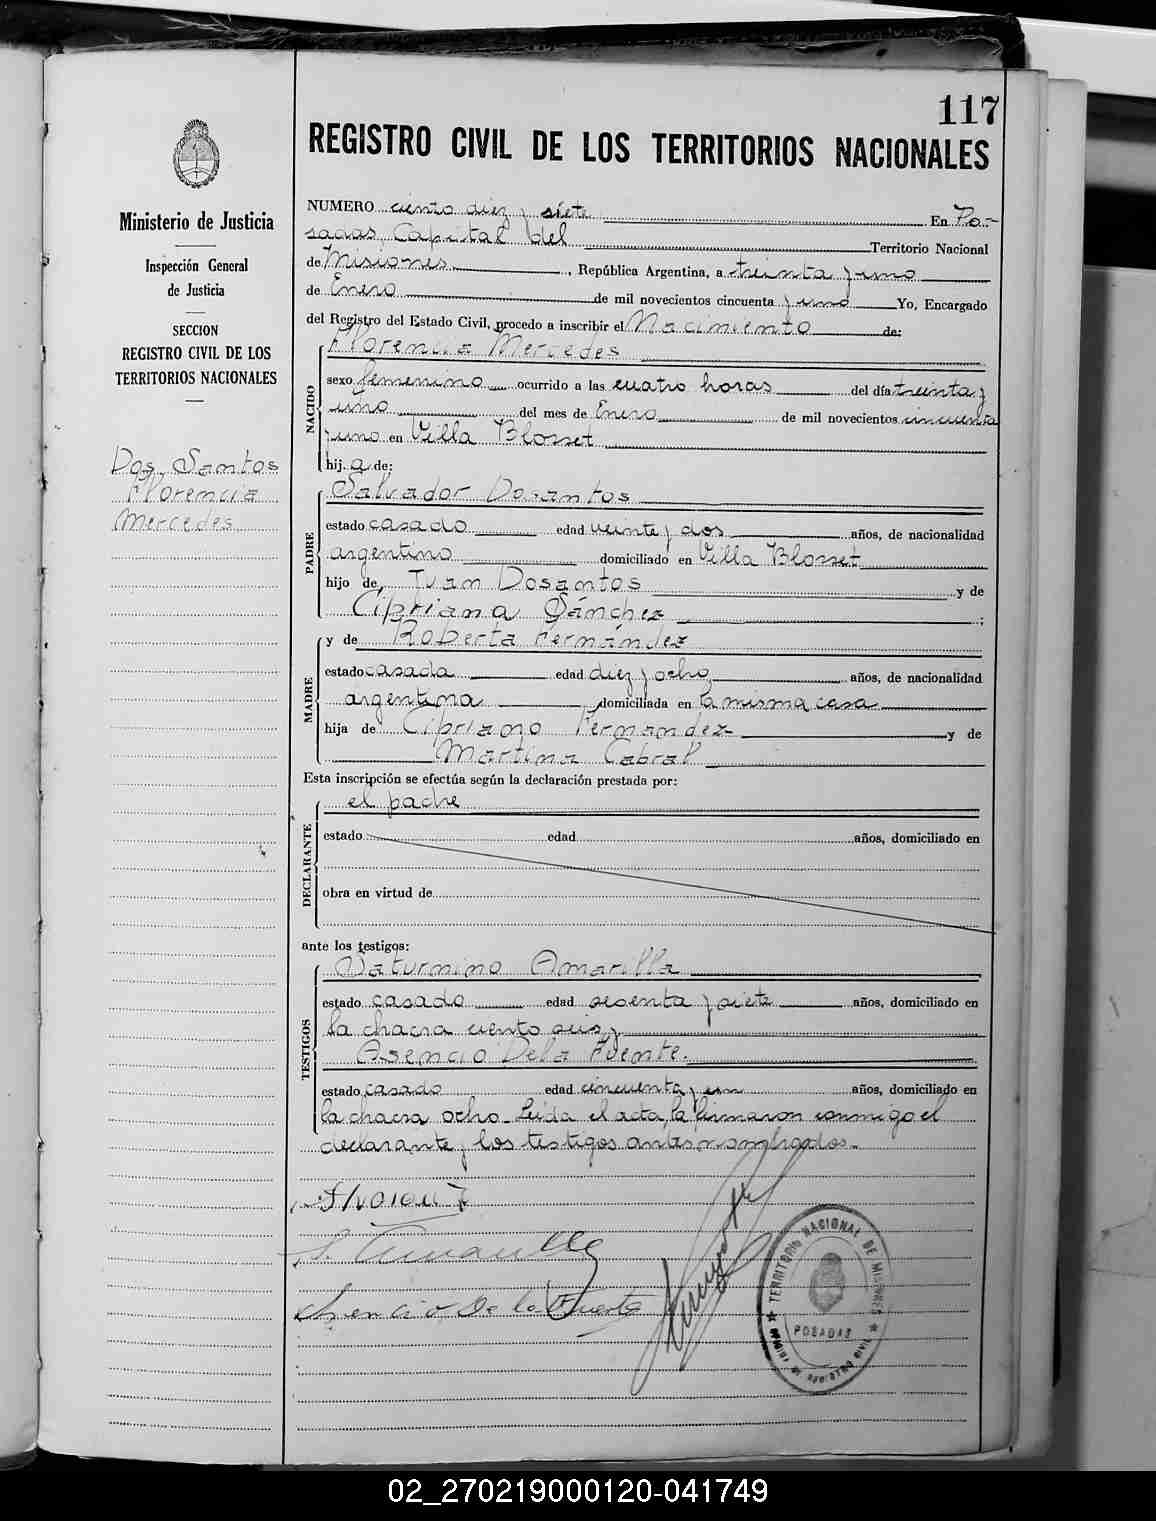 117
REGISTRO CIVIL DE LOS TERRITORIOS NACIONALES
Ministerio de Justicia
Inspección General
de Justicia
SECCION
REGISTRO CIVIL DE LOS
TERRITORIOS NACIONALES
Dos Santos
Florencia
Mercedes
NUMERO ciento diez y siete En Po-
sadas Capital del Territorio Nacional
de Misiones, República Argentina, a treinta y uno
de Enero de mil novecientos cincuenta y uno Yo, Encargado
del Registro del Estado Civil, procedo a inscribir el Nacimiento de:
NACIDO
Florencia Mercedes
sexo femenino ocurrido a las cuatro horas del día treinta y
uno del mes de Enero de mil novecientos cincuenta
y uno en Villa Blosset
hij.a de:
PADRE
Salvador Dosantos
estado casado edad veinte y dos años, de nacionalidad
argentino domiciliado en Villa Blosset
hijo de Juan Dosantos y de
Cipriana Sánchez ;
MADRE
y de Roberta Fernández
estado casada edad diez y ocho años, de nacionalidad
argentina domiciliada en la misma casa
hija de Cipriano Fernandez y de
Martina Cabral
Esta inscripción se efectúa según la declaración prestada por:
DECLARANTE
el padre
estado edad años, domiciliado en
obra en virtud de
ante los testigos:
TESTIGOS
Saturnino Amarilla
estado casado edad sesenta y siete años, domiciliado en
la chacra ciento seis y
Asencio Dela Fuente.
estado casado edad cincuenta y un años, domiciliado en
la chacra ocho. Leída el acta, la firmaron conmigo el
declarante y los testigos antes nombrados.-
S. Amarilla
Asencio De la Fuente
TERRITORIO NACIONAL DE MISIONES
POSADAS
02_270219000120-041749